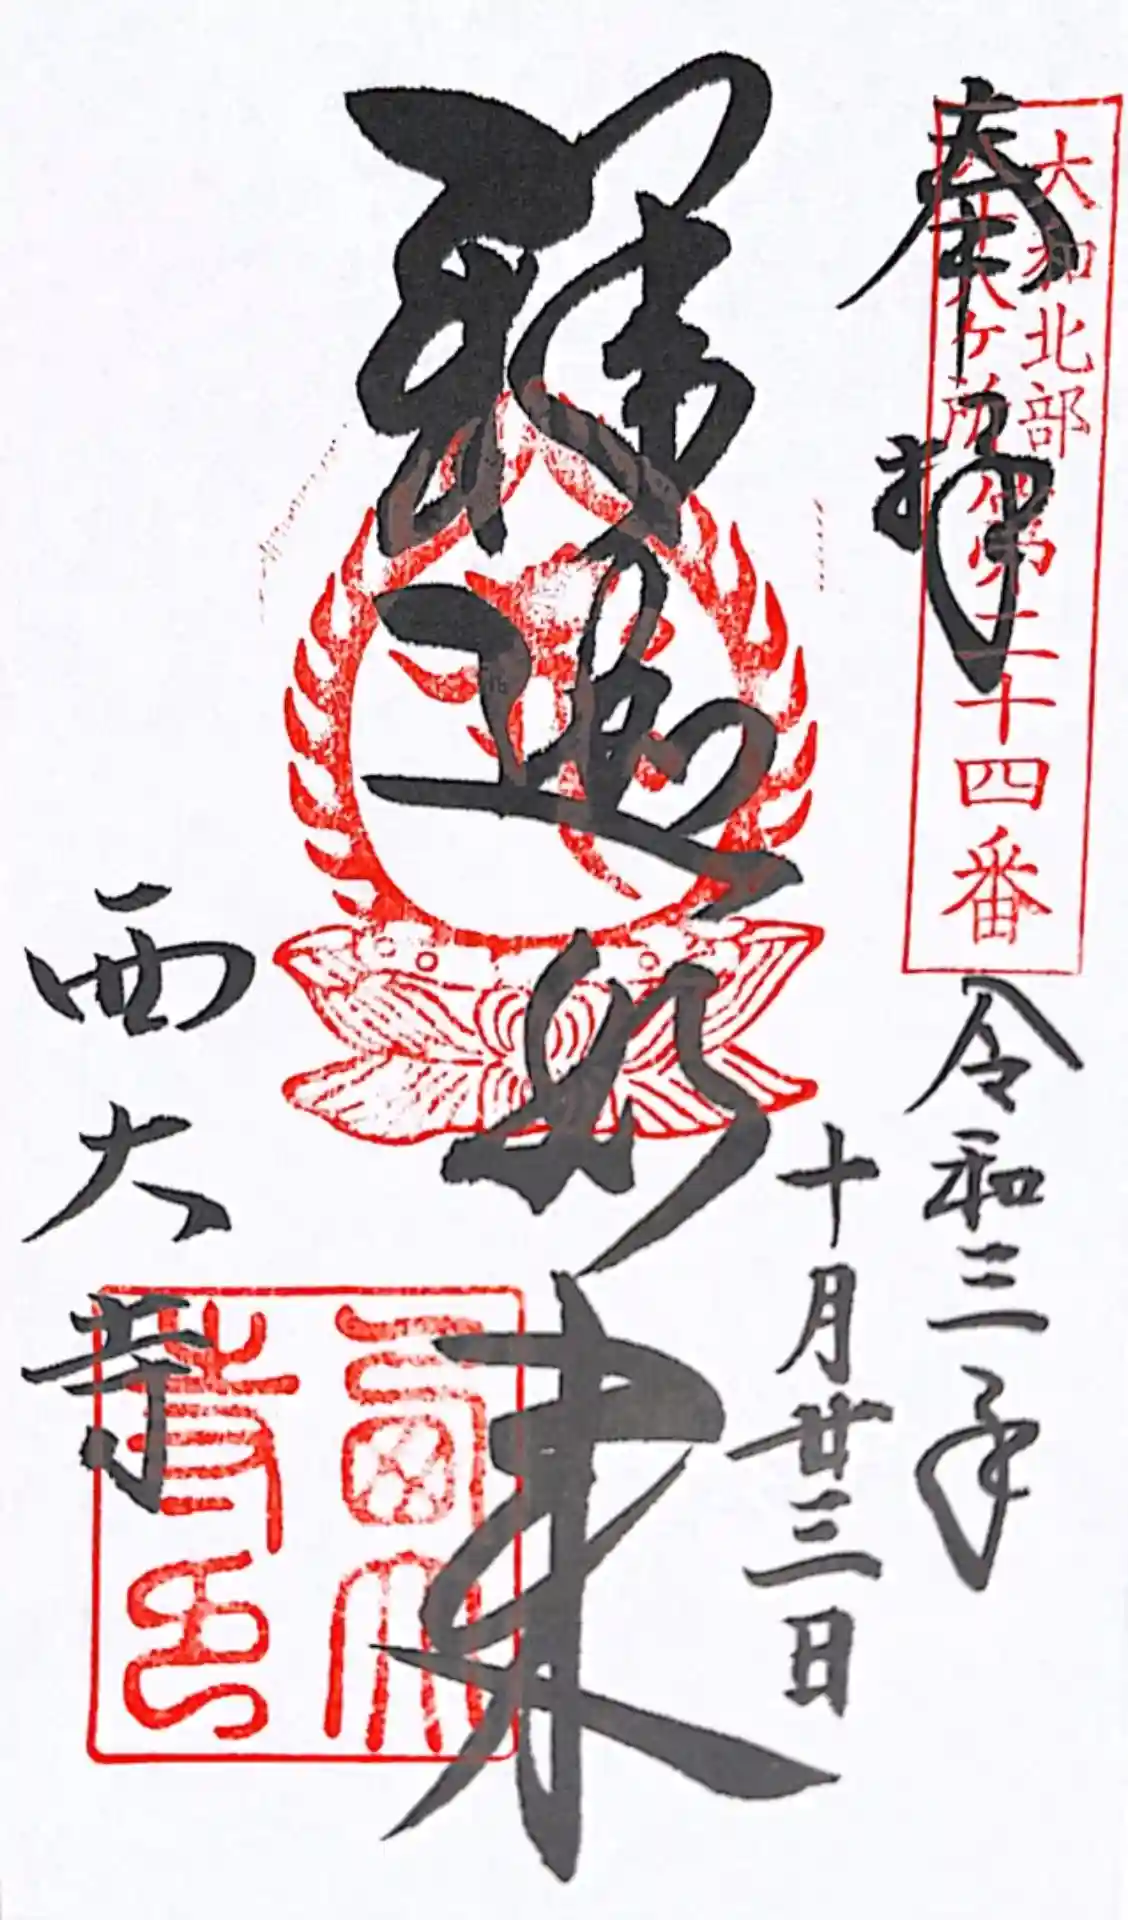 奉拝
大和北部
八十八ヶ所 第二十四番
令和三年
十月廿三日
釋迦如来
西大寺
西大寺印